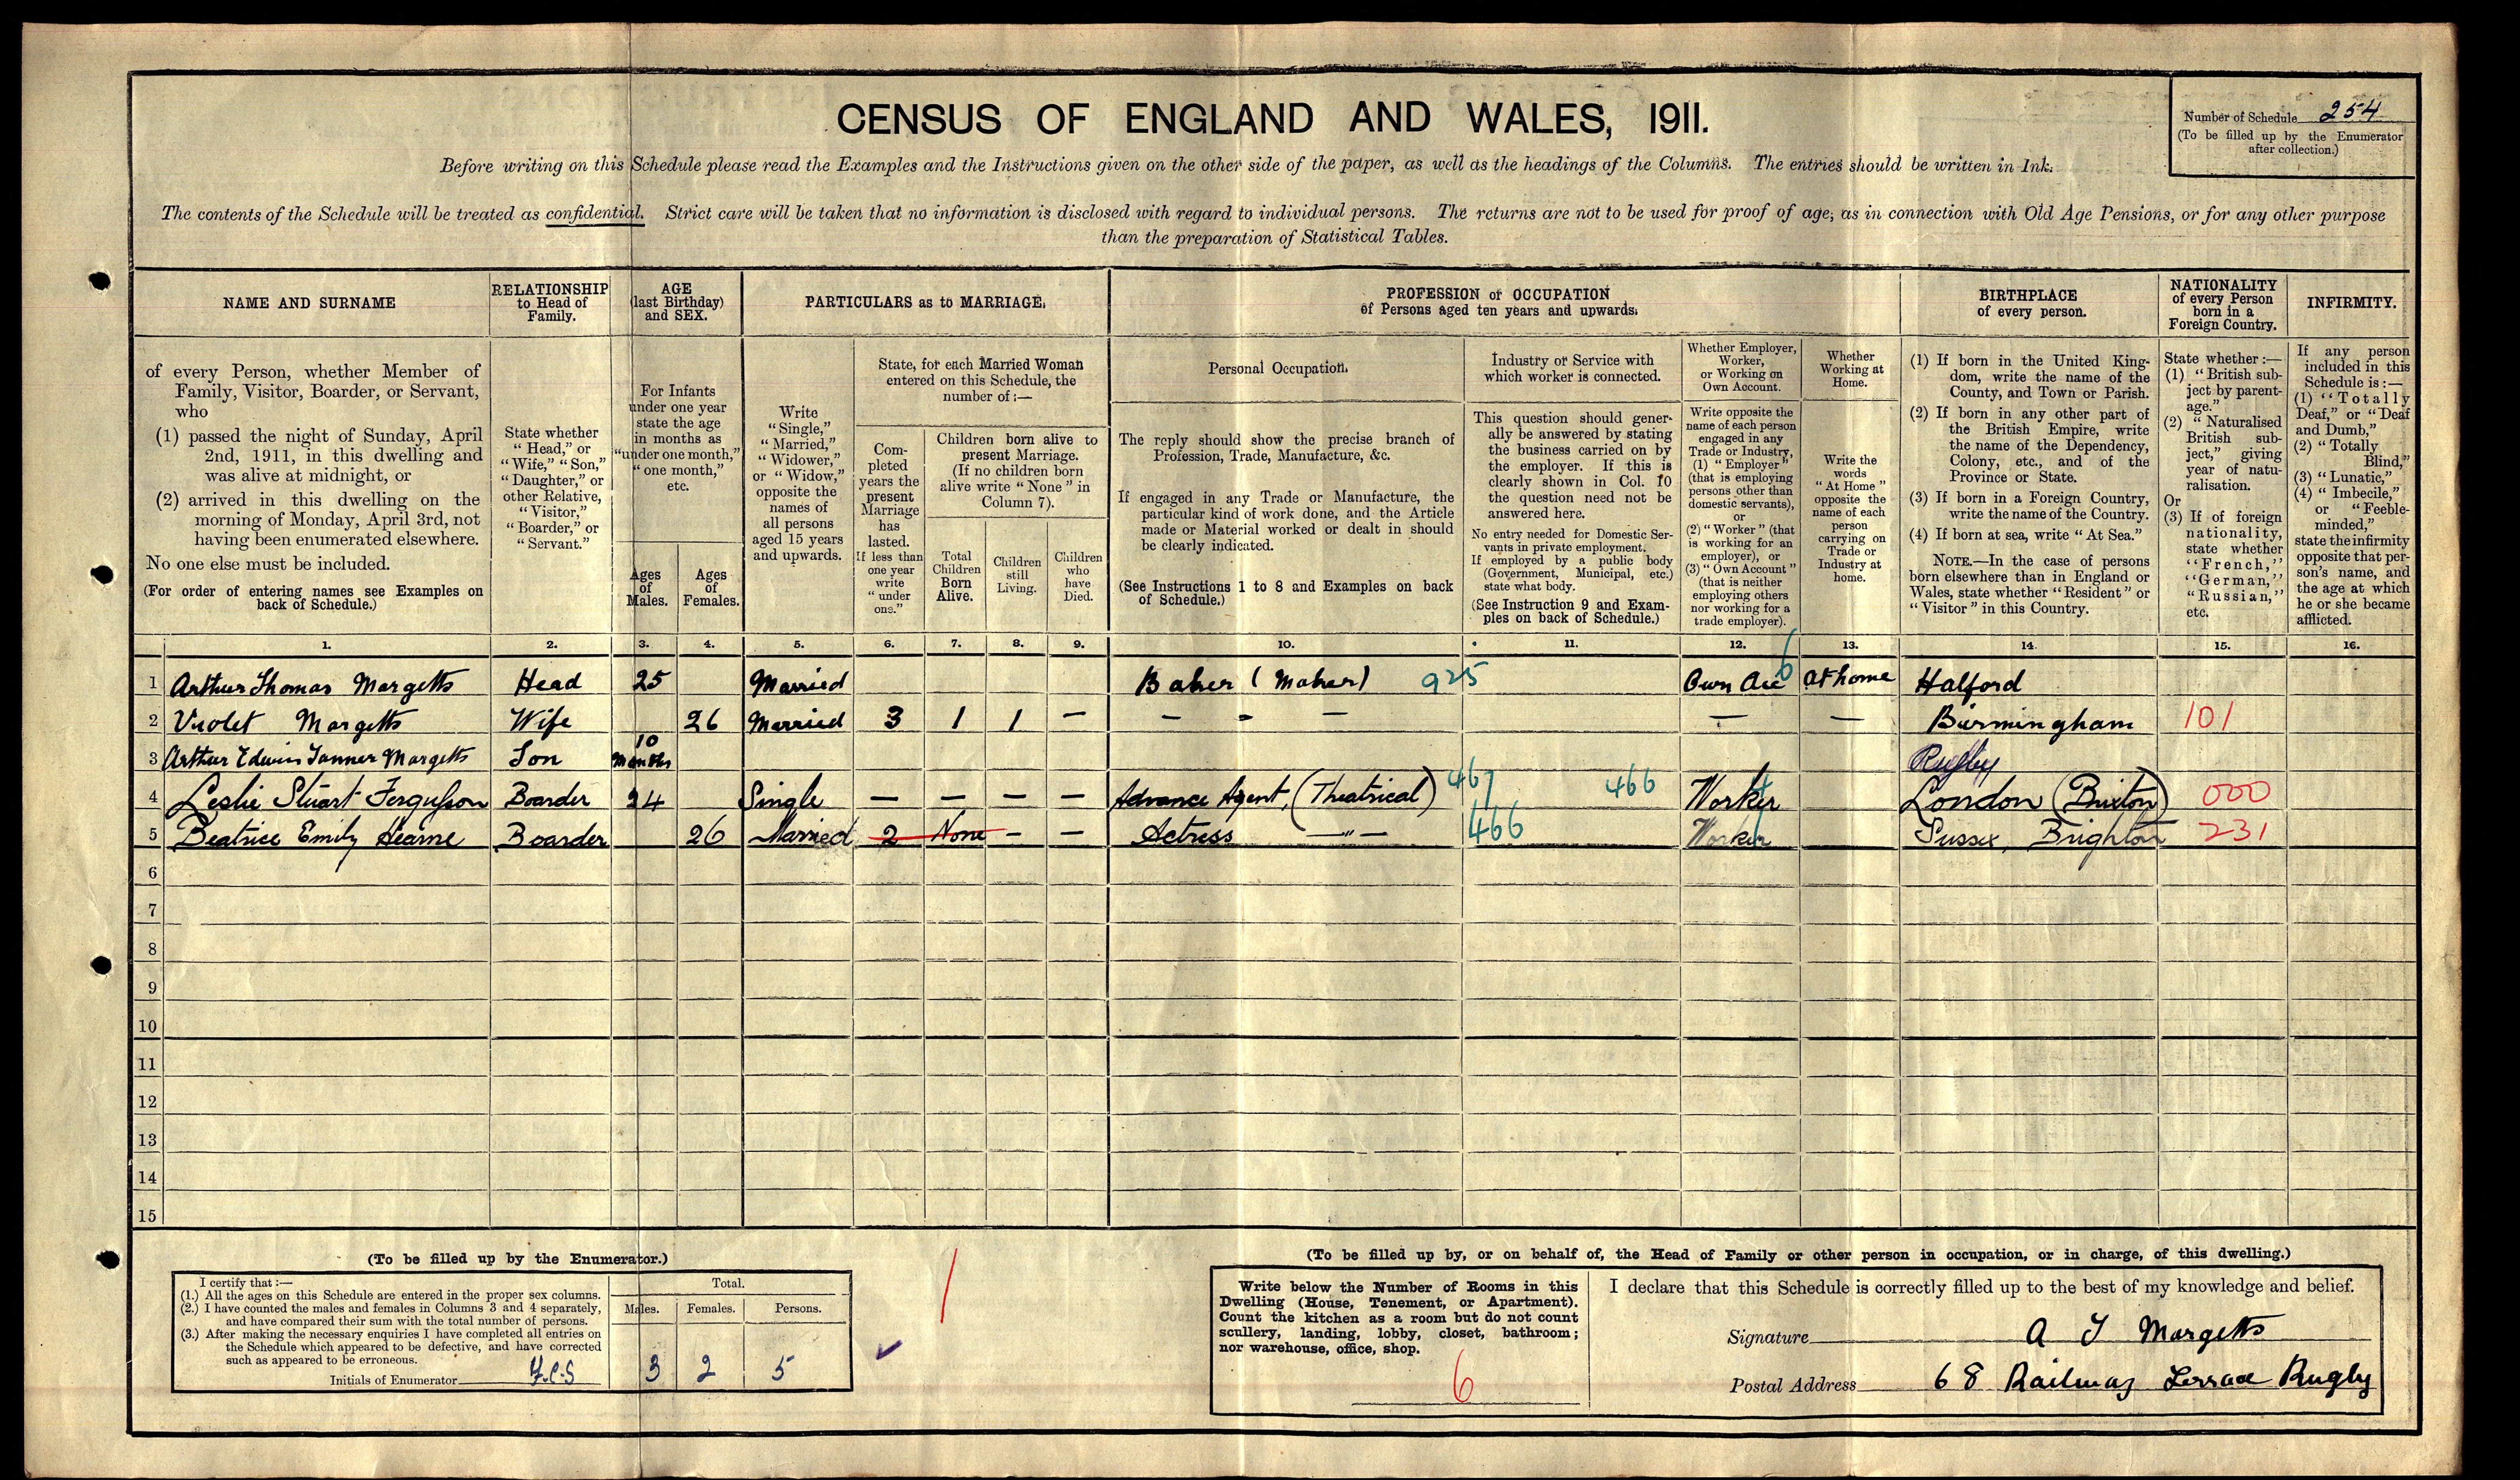 CENSUS OF ENGLAND AND WALES, 1911.
Number of Schedule 254
(To be filled up by the Enumerator
after collection.)
Before writing on this Schedule please read the Examples and the Instructions given on the other side of the paper, as well as the headings of the Columns. The entries should be written in Ink.
The contents of the Schedule will be treated as confidential. Strict care will be taken that no information is disclosed with regard to individual persons. The returns are not to be used for proof of age, as in connection with Old Age Pensions, or for any other purpose
than the preparation of Statistical Tables.
NAME AND SURNAME
of every Person, whether Member of
Family, Visitor, Boarder, or Servant,
who
(1) passed the night of Sunday, April
2nd, 1911, in this dwelling and
was alive at midnight, or
(2) arrived in this dwelling on the
morning of Monday, April 3rd, not
having been enumerated elsewhere.
No one else must be included.
(For order of entering names see Examples on
back of Schedule.)
RELATIONSHIP
to Head of
Family.
State whether
"Head," or
"Wife," "Son,"
"Daughter," or
other Relative,
"Visitor,"
"Boarder," or
"Servant."
AGE
(last Birthday)
and SEX.
For Infants
under one year
state the age
in months as
"under one month,"
"one month,"
etc.
Ages
of
Males.
Ages
of
Females.
PARTICULARS as to MARRIAGE.
Write
"Single,"
"Married,"
"Widower,"
or "Widow,"
opposite the
names of
all persons
aged 15 years
and upwards.
State, for each Married Woman
entered on this Schedule, the
number of:—
Com-
pleted
years the
present
Marriage
has
lasted.
If less than
one year
write
"under
one."
Children born alive to
present Marriage.
(If no children born
alive write "None" in
Column 7).
Total
Children
Born
Alive.
Children
still
Living.
Children
who
have
Died.
PROFESSION or OCCUPATION
of Persons aged ten years and upwards.
Personal Occupation.
The reply should show the precise branch of
Profession, Trade, Manufacture, &c.
If engaged in any Trade or Manufacture, the
particular kind of work done, and the Article
made or Material worked or dealt in should
be clearly indicated.
(See Instructions 1 to 8 and Examples on back
of Schedule.)
Industry or Service with
which worker is connected.
This question should gener-
ally be answered by stating
the business carried on by
the employer. If this is
clearly shown in Col. 10
the question need not be
answered here.
No entry needed for Domestic Ser-
vants in private employment.
If employed by a public body
(Government, Municipal, etc.)
state what body.
(See Instruction 9 and Exam-
ples on back of Schedule.)
Whether Employer,
Worker,
or Working on
Own Account.
Write opposite the
name of each person
engaged in any
Trade or Industry,
(1) "Employer"
(that is employing
persons other than
domestic servants),
or
(2) "Worker" (that
is working for an
employer), or
(3) "Own Account"
(that is neither
employing others
nor working for a
trade employer).
Whether
Working at
Home.
Write the
words
"At Home"
opposite the
name of each
person
carrying on
Trade or
Industry at
home.
BIRTHPLACE
of every person.
(1) If born in the United King-
dom, write the name of the
County, and Town or Parish.
(2) If born in any other part of
the British Empire, write
the name of the Dependency,
Colony, etc., and of the
Province or State.
(3) If born in a Foreign Country,
write the name of the Country.
(4) If born at sea, write "At Sea."
NOTE.—In the case of persons
born elsewhere than in England or
Wales, state whether "Resident" or
"Visitor" in this Country.
NATIONALITY
of every Person
born in a
Foreign Country.
State whether:—
(1) "British sub-
ject by parent-
age."
(2) "Naturalised
British sub-
ject," giving
year of natu-
ralisation.
Or
(3) If of foreign
nationality,
state whether
"French,"
"German,"
"Russian,"
etc.
INFIRMITY.
If any person
included in this
Schedule is:—
(1) "Totally
Deaf," or "Deaf
and Dumb,"
(2) "Totally
Blind,"
(3) "Lunatic,"
(4) "Imbecile,"
or "Feeble-
minded,"
state the infirmity
opposite that per-
son's name, and
the age at which
he or she became
afflicted.
1. 2. 3. 4. 5. 6. 7. 8. 9. 10. 11. 12. 13. 14. 15. 16.
1 Arthur Thomas Margetts Head 25 Married Baker (Maker) 925 Own Acc 6 At home Halford
2 Violet Margetts Wife 26 Married 3 1 1 — — — — — — Birmingham 101
3 Arthur Edwin Tanner Margetts Son 10 Months Rugby
4 Leslie Stuart Fergusson Boarder 24 Single — — — — Advance Agent, (Theatrical) 467 466 Worker London (Brixton) 000
5 Beatrice Emily Hearne Boarder 26 Married 2 None — — Actress —"— 466 Worker Sussex, Brighton 231
6
7
8
9
10
11
12
13
14
15
(To be filled up by the Enumerator.)
I certify that:—
(1.) All the ages on this Schedule are entered in the proper sex columns.
(2.) I have counted the males and females in Columns 3 and 4 separately,
and have compared their sum with the total number of persons.
(3.) After making the necessary enquiries I have completed all entries on
the Schedule which appeared to be defective, and have corrected
such as appeared to be erroneous.
Initials of Enumerator
Total.
Males. Females. Persons.
3 2 5
(To be filled up by, or on behalf of, the Head of Family or other person in occupation, or in charge, of this dwelling.)
Write below the Number of Rooms in this
Dwelling (House, Tenement, or Apartment).
Count the kitchen as a room but do not count
scullery, landing, lobby, closet, bathroom;
nor warehouse, office, shop.
6
I declare that this Schedule is correctly filled up to the best of my knowledge and belief.
Signature A T Margetts
Postal Address 68 Railway Terrace Rugby